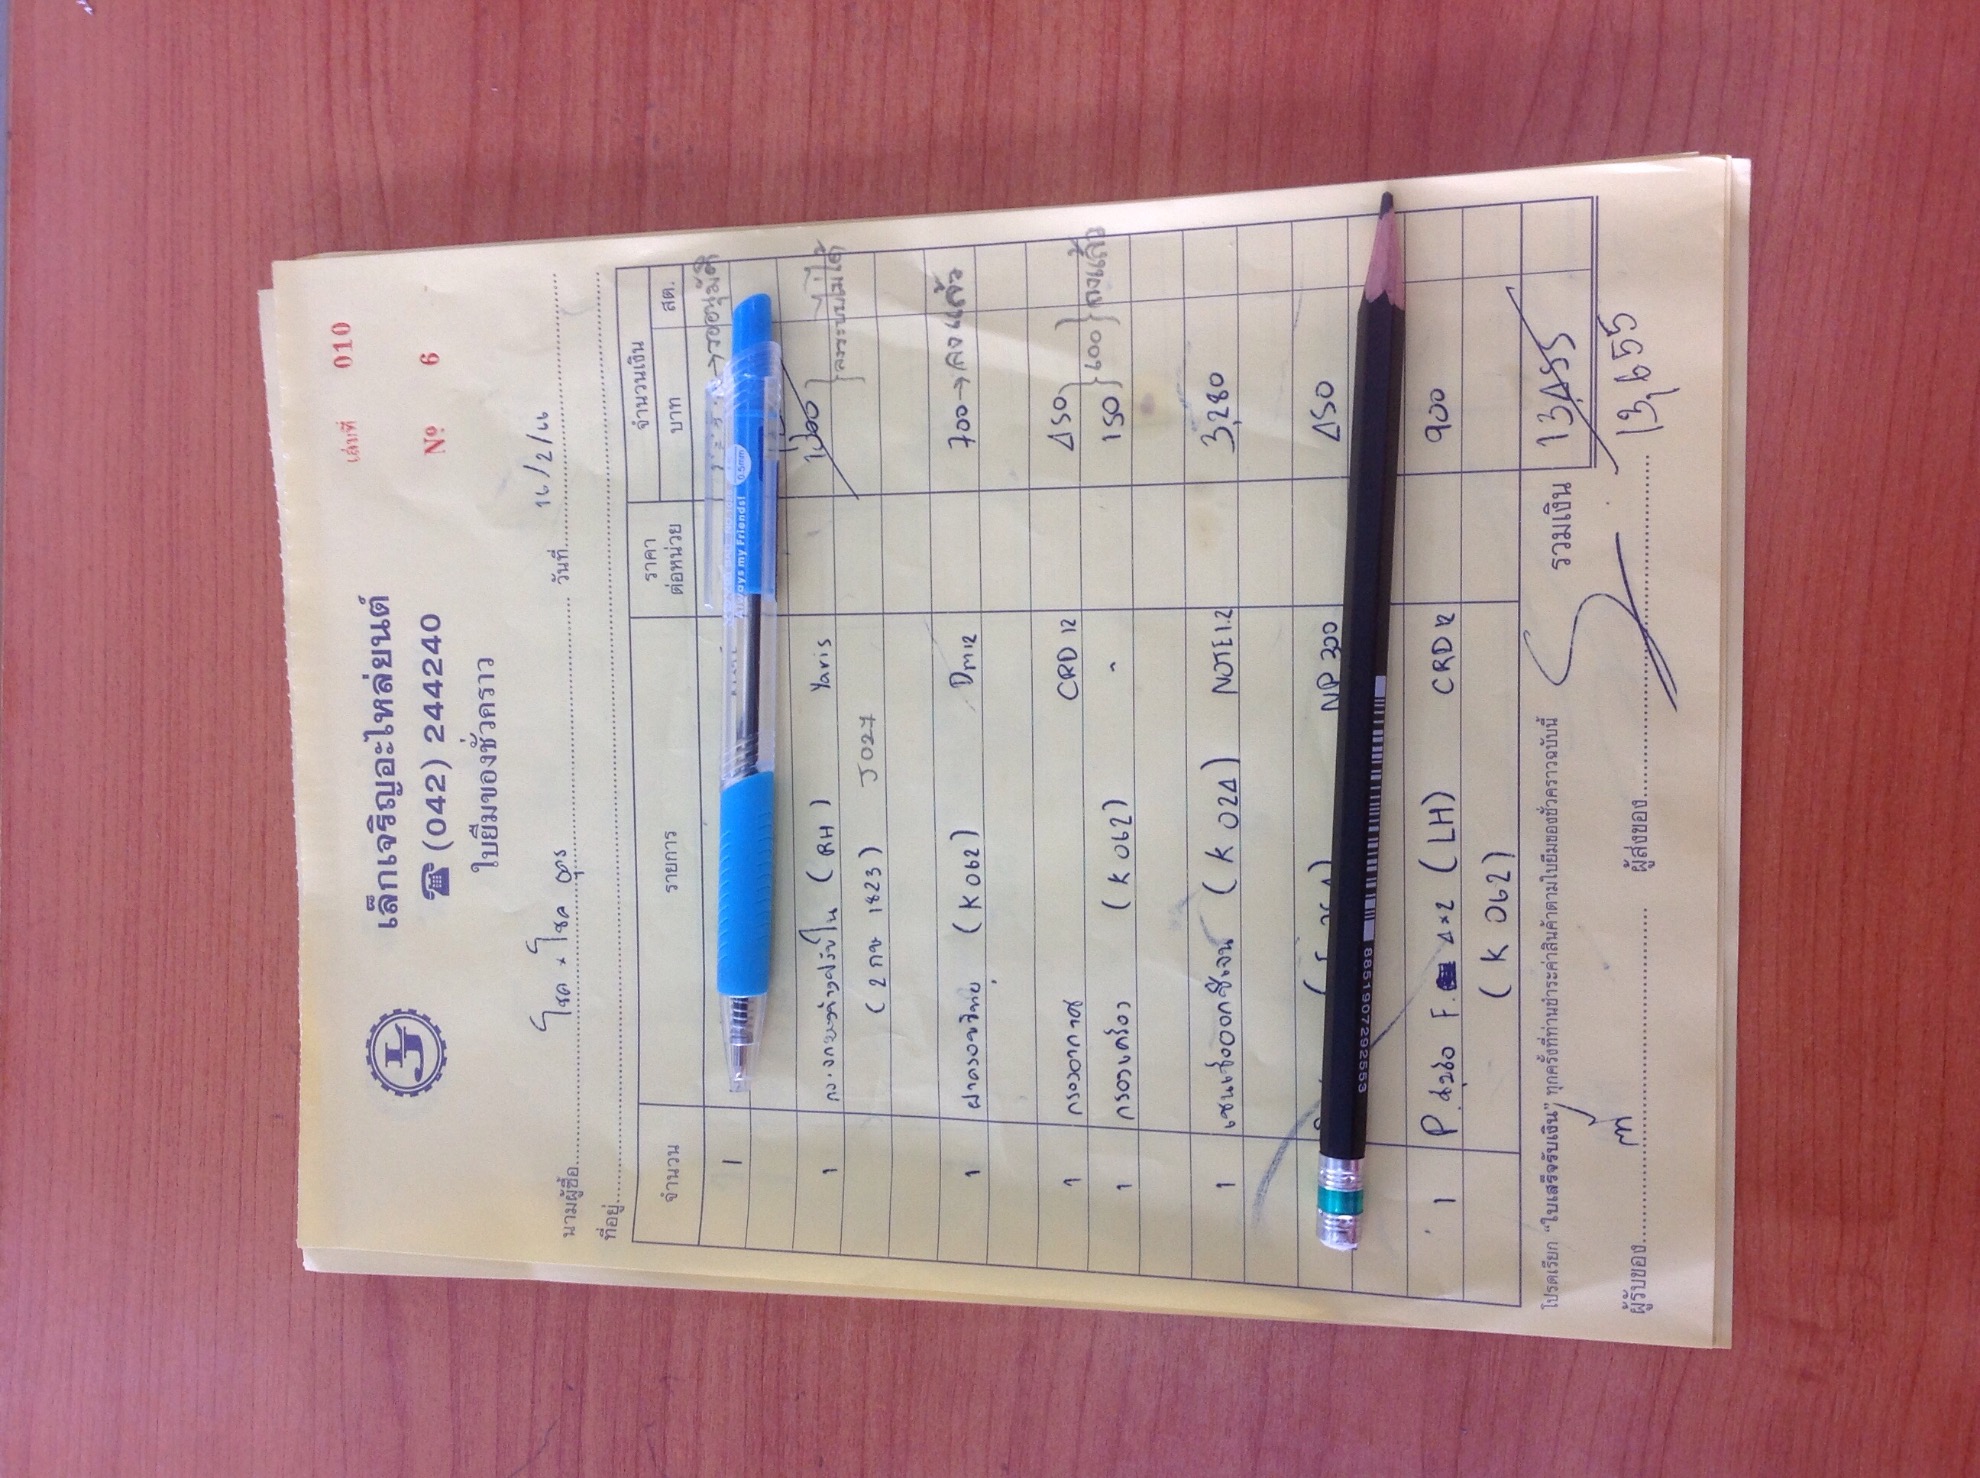 เล่มที่ 010
เล็กเจริญอะไหล่ยนต์
☎ (042) 244240
Nº 6
ใบยืมของชั่วคราว
นามผู้ซื้อ โชค x โชค อุดร วันที่ 16/2/66
ที่อยู่
จำนวน รายการ ราคาต่อหน่วย จำนวนเงิน
บาท สต.
1 → รออนุมัติ
1 (RH) Yaris
(2 กษ 1823) J027
1 (K062) Dm12 700 → ลงแล้ว
1 กรองอากาศ CRD 12 450
1 กรองเครื่อง (K 062) " 150 } 600 } ลงแล้ว
1 เซนเซอร์ออกซิเจน (K 024) NOTE 1.2 3,280
NP 300 450
1 F. 4x2 (LH) CRD 12 900
(K 062)
โปรดเรียก "ใบเสร็จรับเงิน" ทุกครั้งที่ท่านชำระค่าสินค้าตามใบยืมของชั่วคราวฉบับนี้
รวมเงิน 13,455
13,655
ผู้รับของ ผู้ส่งของ
always my Friends! 0.5mm
8851907292553